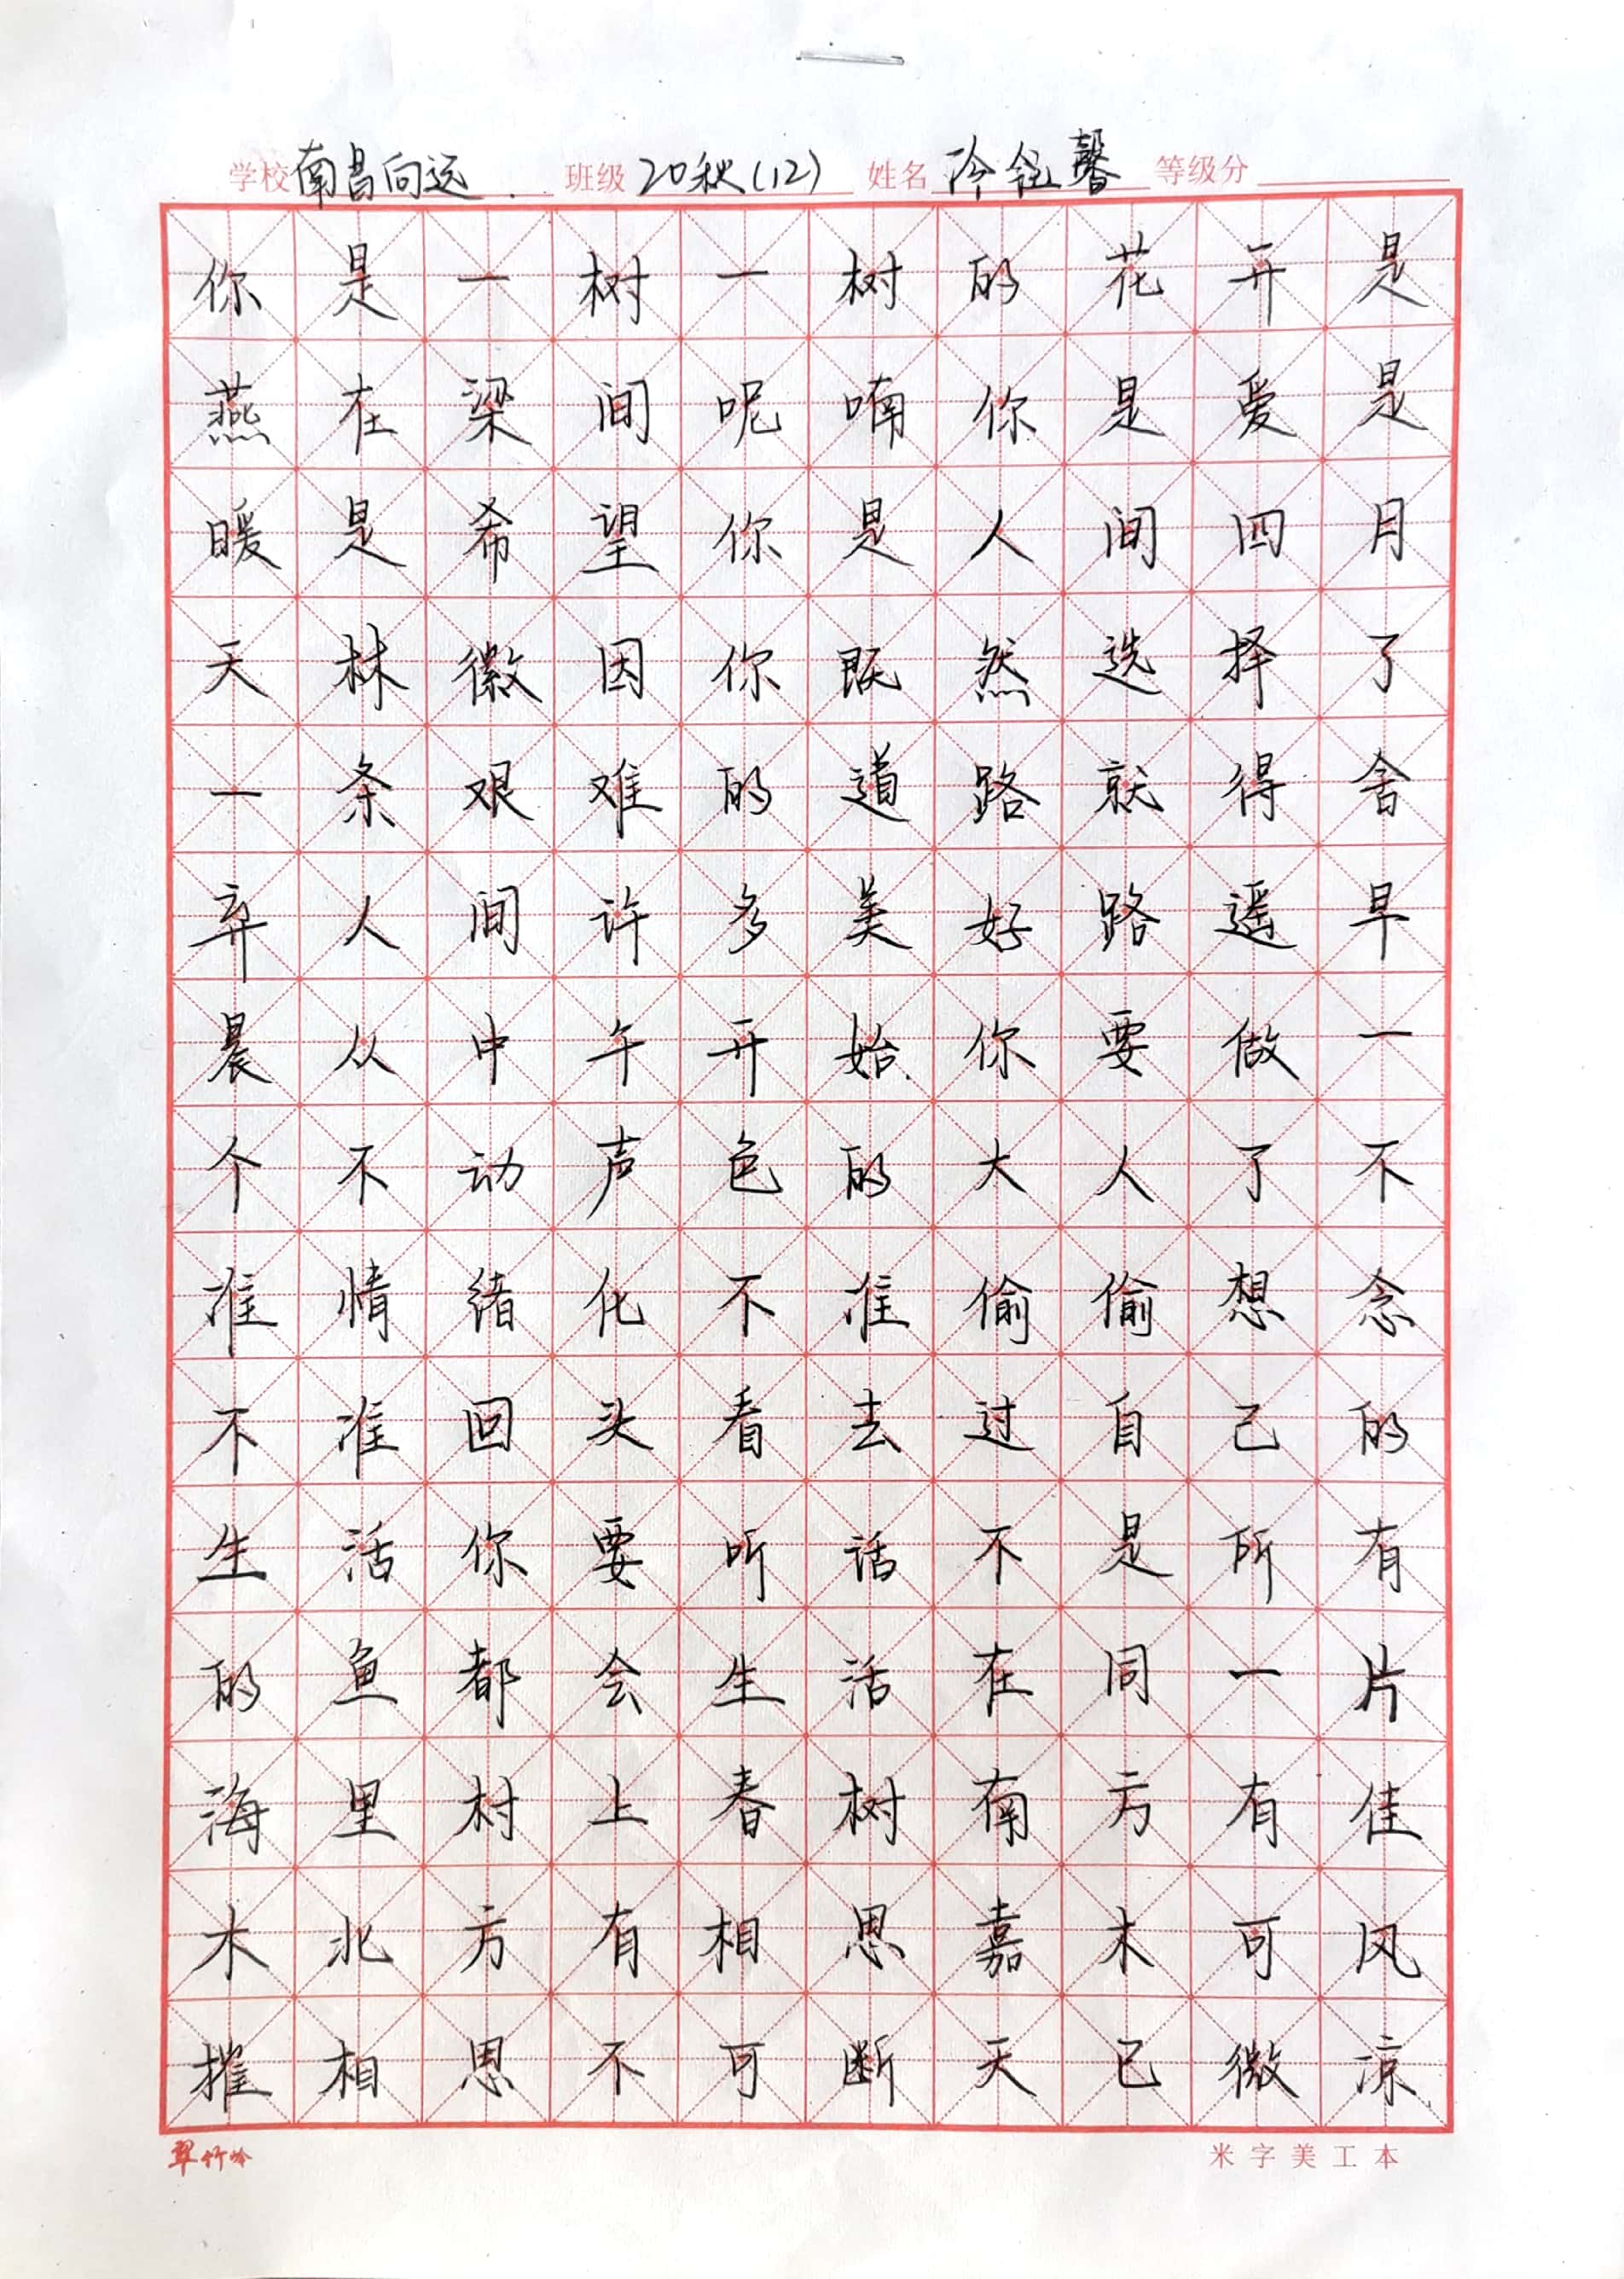 学校 南昌向远 班级 20秋(12) 姓名 冷钰馨 等级分
你是一树一树的花开是
燕在梁间呢喃你是爱是
暖是希望你是人间四月
天林徽因你既然选择了
一条艰难的道路就得舍
弃人间许多美好路遥早
晨从中午开始你要做一
个不动声色的大人了不
准情绪化不准偷偷想念
不准回头看去过自己的
生活你要听话不是所有
的鱼都会生活在同一片
海里村上春树南方有佳
木北方有相思嘉木可风
摧相思不可断天已微凉
翠竹岭 米字美工本